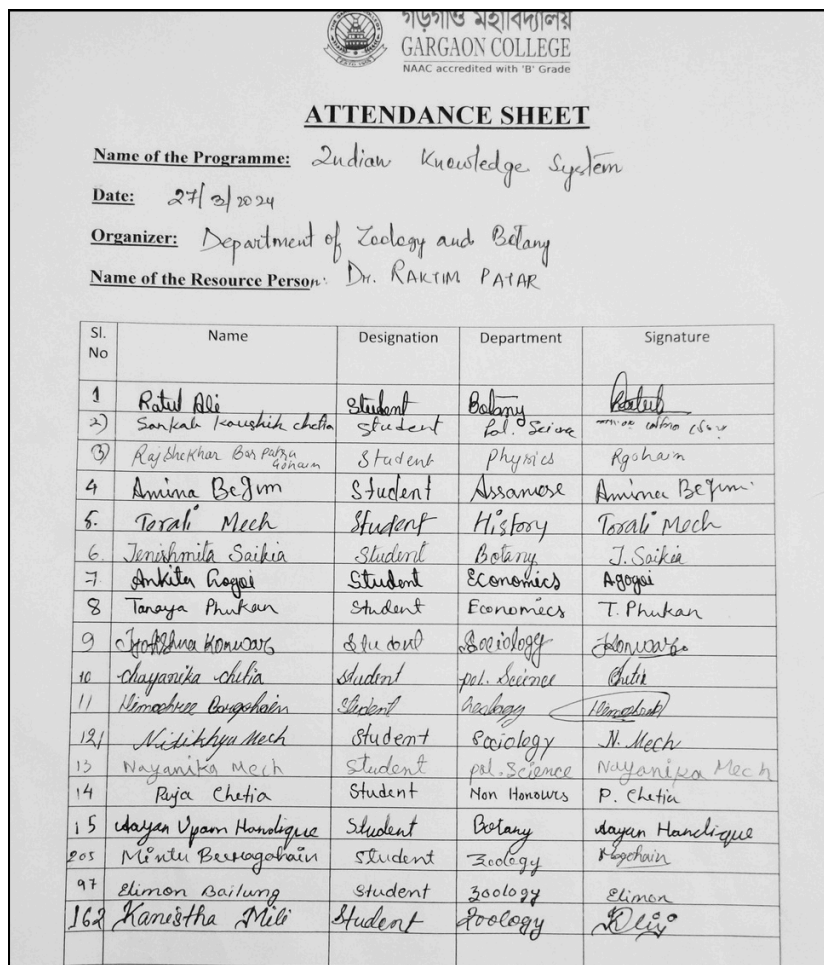 গড়গাঁও মহাবিদ্যালয়
GARGAON COLLEGE
NAAC accredited with 'B' Grade
ATTENDANCE SHEET
Name of the Programme: Indian Knowledge System
Date: 27/3/2024
Organizer: Department of Zoology and Botany
Name of the Resource Person: Dr. RAKTIM PATAR
Sl. No Name Designation Department Signature
1 Ratul Ali Student Botany Ratul
2) Sankalp Kaushik Chetia Student Pol. Science
3) Rajshekhar Bar Patra Gohain Student Physics Rgohain
4 Amina Begum Student Assamese Amina Begum
5. Torali Mech Student History Torali Mech
6. Jenishmita Saikia Student Botany J. Saikia
7. Ankita Gogoi Student Economics Agogoi
8 Tanaya Phukan Student Economics T. Phukan
9 Jyotshna Konwar Student Sociology Jkonwar.
10 Chayanika Chetia Student pol. Science Chetia
11 Himashree Borgohain Student Geology
12 Nitikhya Mech Student Sociology N. Mech
13 Nayanika Mech Student pol. Science Nayanika Mech
14 Puja Chetia Student Non Honours P. Chetia
15 Aayan Upam Handique Student Botany Aayan Handique
205 Mintu Buragohain Student Zoology
97 Elimon Bailung Student Zoology Elimon
162 Kanistha Mili Student Zoology